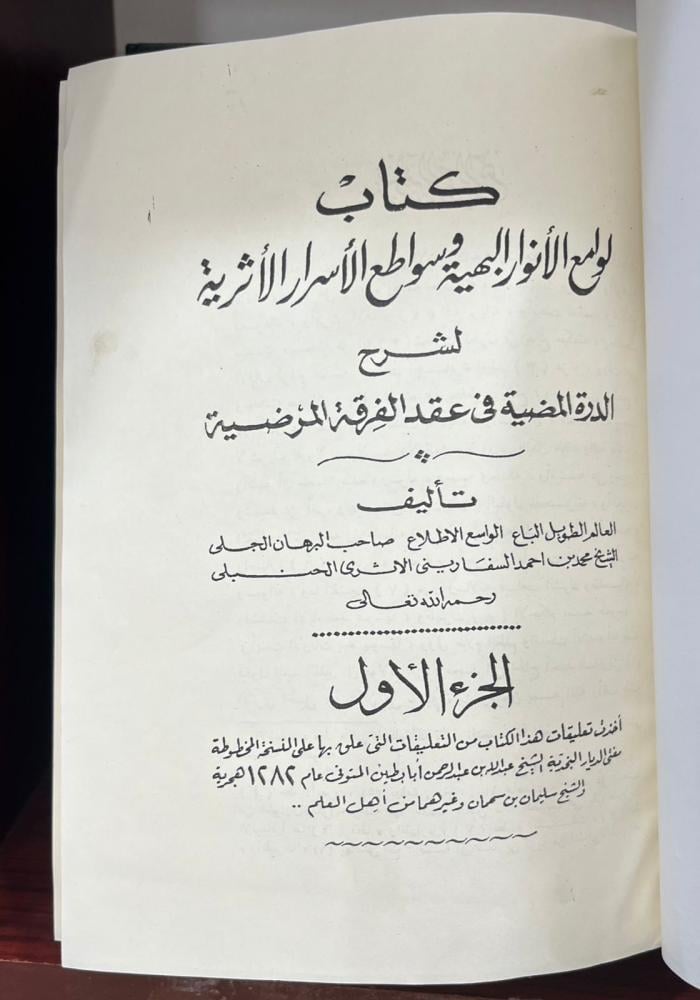 كتاب
لوامع الأنوار البهية وسواطع الأسرار الأثرية
لشرح
الدرة المضية في عقد الفرقة المرضية
تأليف
العالم الطويل الباع الواسع الاطلاع صاحب البرهان الجلى
الشيخ محمد بن احمد السفارينى الاثرى الحنبلى
رحمه الله تعالى
الجزء الأول
أخذت تعليقات هذا الكتاب من التعليقات التى علق بها على النسخة الخطوطة
مفتى الديار النجدية الشيخ عبدالله بن عبدالرحمن أبا بطين المتوفى عام ١٢٨٢ هجرية
والشيخ سليمان بن سحمان وغيرهما من أهل العلم ..